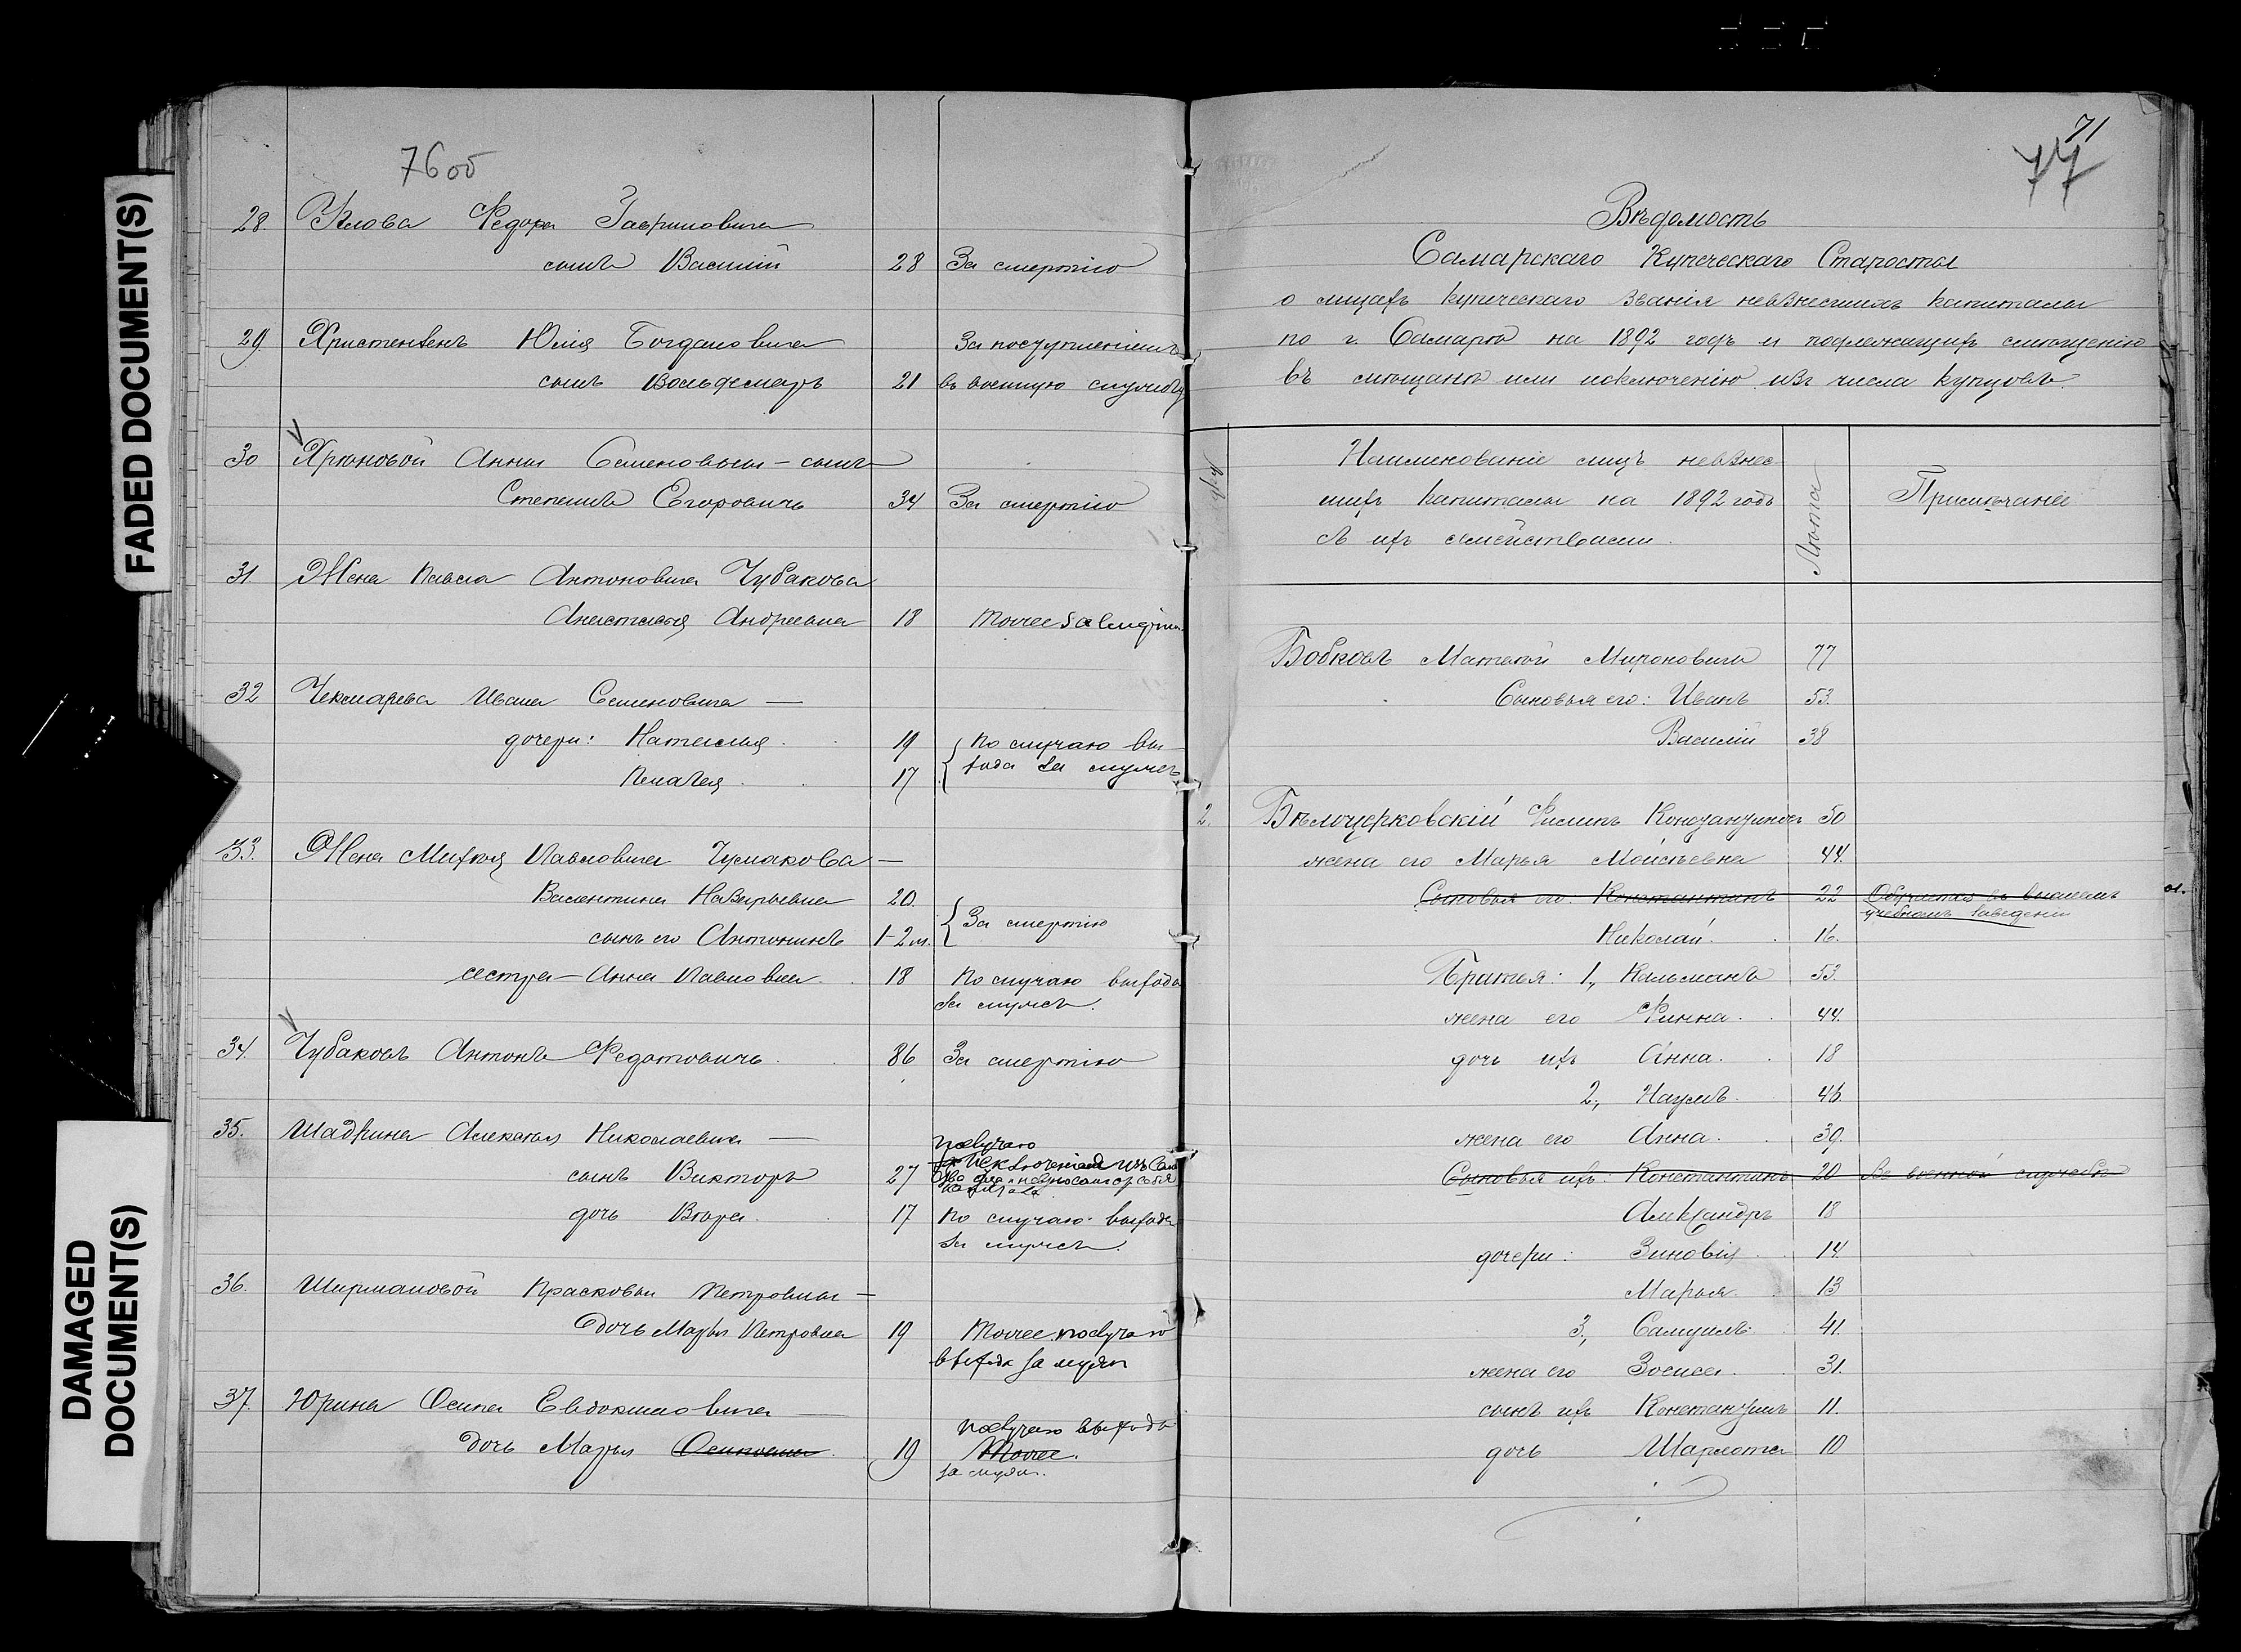 FADED DOCUMENT(S)
DAMAGED
DOCUMENT(S)
76 об
28. Федора Гавриловича
сынъ Василій 28 За смертію
29. Христензенъ Юлія Богдановича За поступленіемъ
сынъ Вольдемаръ 21 въ военную службу
30 Хрѣновой Анны Семеновны – сынъ
Степанъ Егоровичъ 34 За смертію
31 Жена Павла Антоновича Чубакова
Анастасья Андреевна 18 Тоже за смертію
32 Чекмарева Ивана Семеновича —
дочери: Наталья 19 По случаю вы-
Пелагея 17 хода за мужъ
33. Жена Михея Павловича Чумакова —
Валентина Назарьевна 20.
сынъ его Антонинъ 1-2 м. За смертію
сестра – Анна Павловна 18 По случаю выхода
за мужъ.
34. Чубаковъ Антонъ Федотовичъ 86 За смертію
35. Шадрина Алексѣя Николаевича —
по случаю
сынъ Викторъ 27 исключенія изъ
капитала
дочь Вѣра 17 По случаю выхода
за мужъ.
36. Ширмановой Прасковьи Петровны —
дочь Марья Петровна 19 Тоже по случаю
выхода за мужъ
37. Юрина Осипа Евдокимовича —
по случаю выхода
дочь Марья Осиповна 19 Тоже.
за мужъ.
71
77
Вѣдомость
Самарскаго Купеческаго Старосты
о лицахъ купеческаго званія невзнесшихъ капиталы
по г. Самарѣ на 1892 годъ и подлежащихъ смѣщенію
въ мѣщане или исключенію изъ числа купцовъ.
Наименованіе лицъ невзнес
шихъ капиталы на 1892 годъ
съ ихъ семействами.
Лѣта
Примѣчаніе
Бобковъ Матвѣй Мироновичъ 77
Сыновья его: Иванъ 53.
Василій 38
2. Бѣлоцерковскій Филипъ Константиновъ 50
жена его Марья Моисѣевна 44.
Сыновья его: Константинъ 22 Обучается въ высшемъ
учебномъ заведеніи
Николай 16.
Братья: 1., Кальманъ 53.
жена его Финна 44.
дочь ихъ Анна 18
2., Наумъ 46.
жена его Анна 39.
Сыновья ихъ: Константинъ 20 Въ военной службѣ
Александръ 18
дочери: Зиновія 14.
Марья 13
3., Самуилъ 41.
жена его 31.
сынъ ихъ Константинъ 11.
дочь Шарлота 10